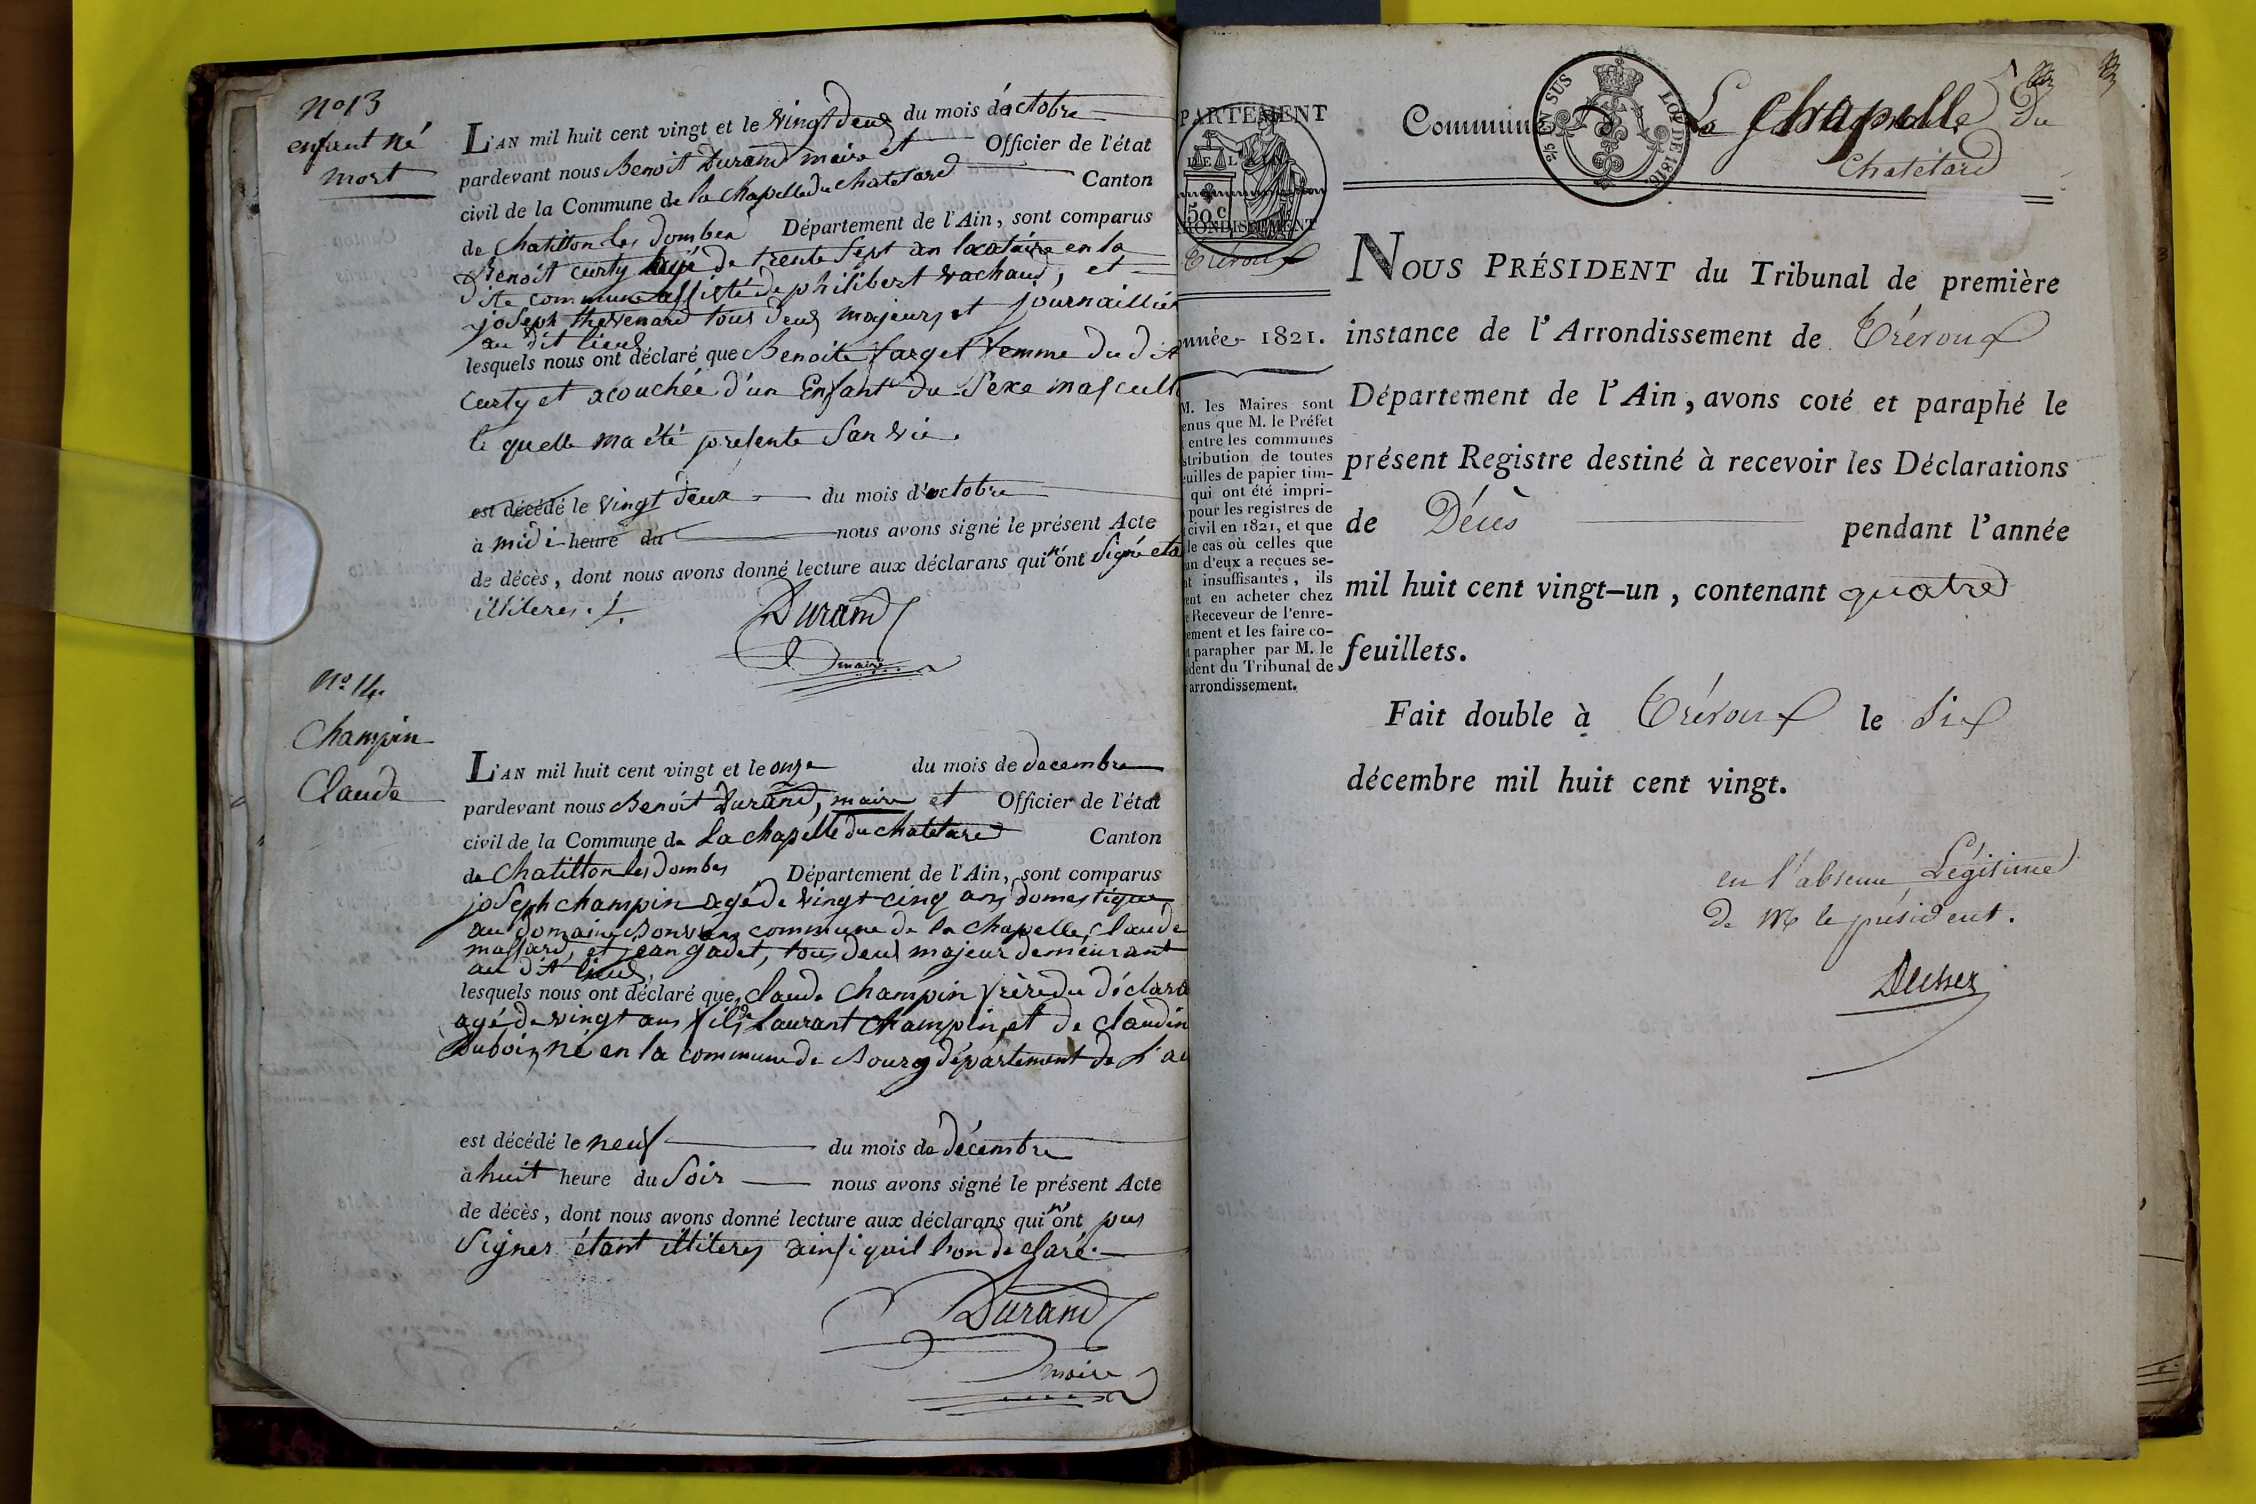 No 13
enfant né
mort
L'AN mil huit cent vingt et le vingt deux du mois d'octobre
pardevant nous Benoit Durand maire et Officier de l'état
civil de la Commune de la chapelle du chatelard Canton
de Chatillon les dombes Département de l'Ain, sont comparus
Benoit curty agé de trente sept an locataire en la
dite commune assisté de philibert vachaud, et
joseph thevenard tous deux majeurs et journaillier
au dit lieux
lesquels nous ont déclaré que Benoite farget femme du dit
curty et acouchée d'un Enfant du sexe mascul
le quelle ma été presente san vie.
est décédé le vingt deux du mois d'octobre
à midi heure du nous avons signé le présent Acte
de décès, dont nous avons donné lecture aux déclarans qui n'ont signé
illiteres.
Durand
maire
No 14
Champin
Claude
L'AN mil huit cent vingt et le onze du mois de decembre
pardevant nous Benoit Durand, maire et Officier de l'état
civil de la Commune de la chapelle du chatelard Canton
de Chatillon les dombes Département de l'Ain, sont comparus
joseph champin agé de vingt cinq ans domestique
au domaine commune de la chapelle, claude
massard, et jean gadet, tous deux majeur demeurant
au dit lieux,
lesquels nous ont déclaré que, claude Champin frère du déclara
agé de vingt ans fils de Laurant Champin, et de claudin
Duboir, né en la commune de Bourg département de l'ai
est décédé le neuf du mois de décembre
à huit heure du soir nous avons signé le présent Acte
de décès, dont nous avons donné lecture aux déclarans qui n'ont pus
signer étant illiteres ainsi quil l'on déclaré.
Durand
maire
PARTEMENT
DE L'AIN
50 c
RONDISSEMENT
Trévoux
nnée 1821.
M. les Maires sont
enus que M. le Préfet
entre les communes
stribution de toutes
euilles de papier tim-
qui ont été impri-
pour les registres de
civil en 1821, et que
le cas où celles que
un d'eux a reçues se-
nt insuffisantes, ils
ent en acheter chez
Receveur de l'enre-
ement et les faire co-
parapher par M. le
ident du Tribunal de
arrondissement.
Commune La Chapelle du
Chatelard
LOI DE 1816
NOUS PRÉSIDENT du Tribunal de première
instance de l'Arrondissement de Trévoux
Département de l'Ain, avons coté et paraphé le
présent Registre destiné à recevoir les Déclarations
de Décès pendant l'année
mil huit cent vingt-un, contenant quatre
feuillets.
Fait double à Trévoux le six
décembre mil huit cent vingt.
en l'absence Légitime
de Mr le président.